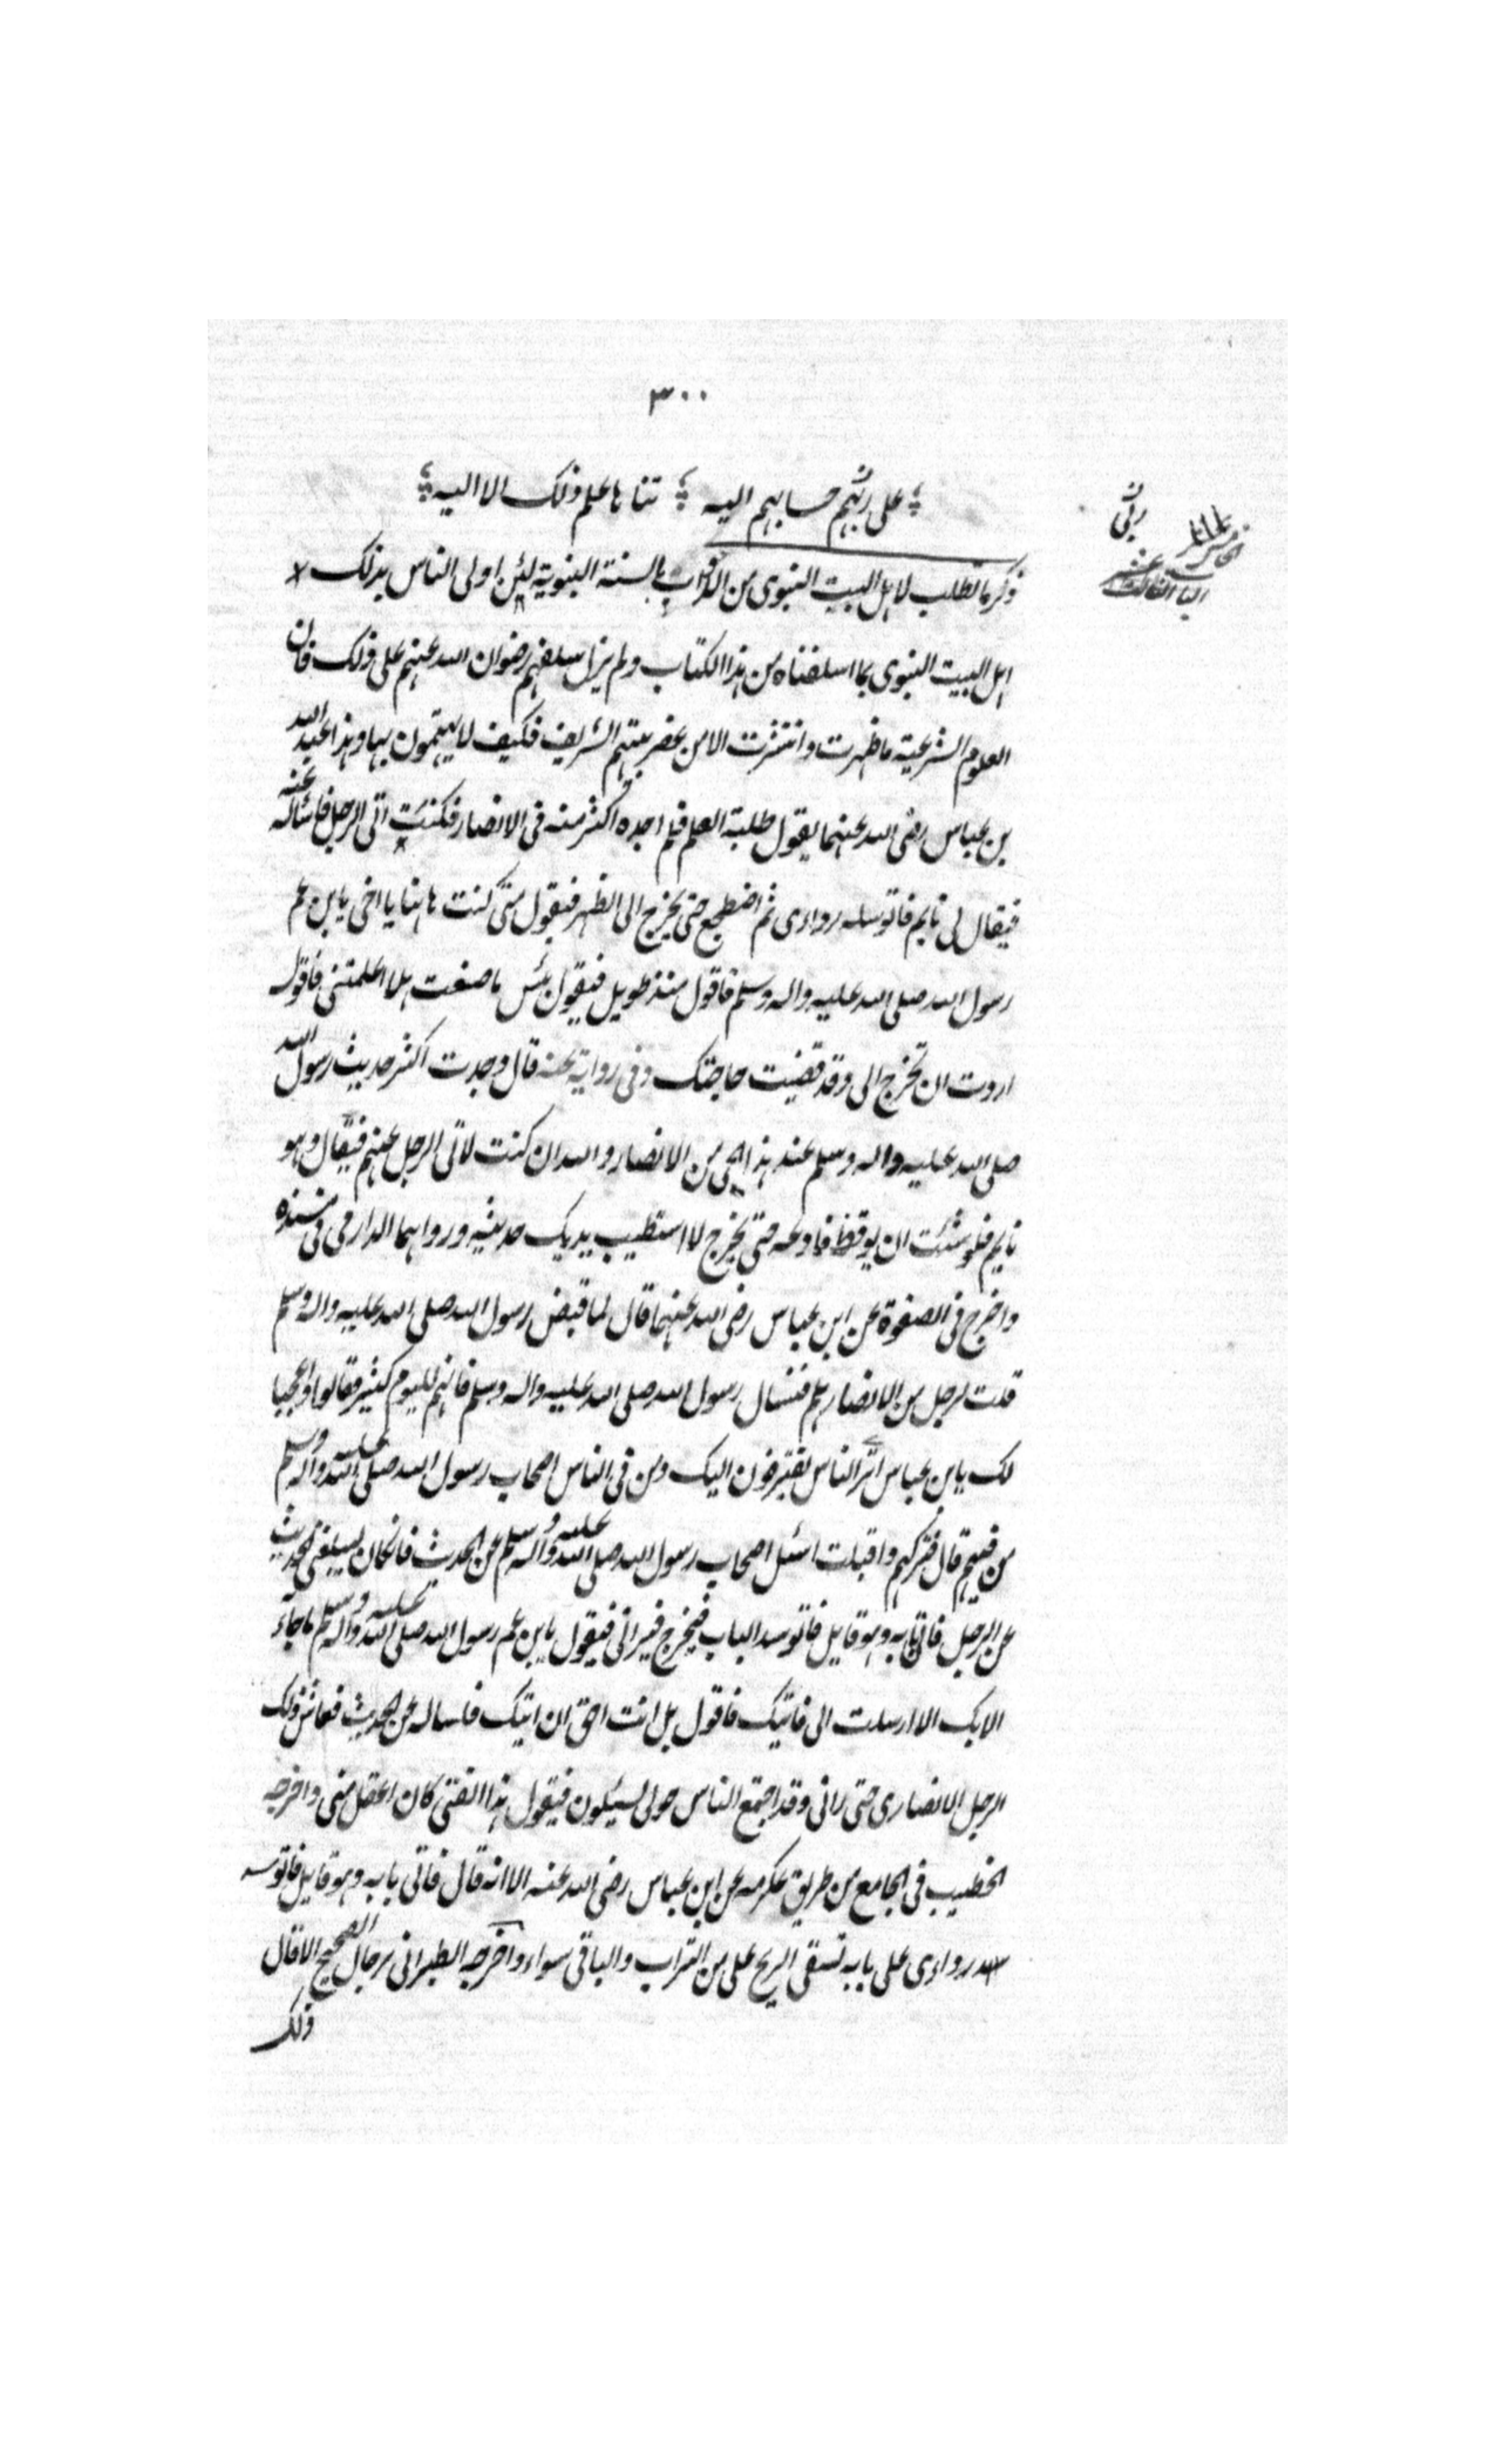 ٣٠٠
على ربهم حسابهم اليه تناها علم ذلك الا اليه
ربى
الباب الثالث عشر
ذكر ما تطلب لاهل البيت النبوى من الداب بالسنة النبوية لئن اولى الناس بذلك
اهل البيت النبوى بما اسلفناه من هذا الكتاب ولم يزل سلفهم رضوان الله عنهم على ذلك فان
العلوم الشرعية ما ظهرت وانتشرت الا من عصر بيتهم الشريف فكيف لا يهتمون بها وهذا عبد الله
بن عباس رضى الله عنهما يقول طلبة العلم فلم اجده اكثر منه فى الانصار فكنت اتى الرجل فاساله عنه
فيقال لى نايم فاتوسد رداءى ثم اضطجع حتى يخرج الى الظهر فيقول متى كنت هاهنا يا اخى يا بن عم
رسول الله صلى الله عليه واله وسلم فاقول منذ طويل فيقول بئس ما صنعت هلا اعلمتنى فاقول
اردت ان تخرج الى وقد قضيت حاجتك وفى رواية عنه قال وجدت اكثر حديث رسول الله
صلى الله عليه واله وسلم عند هذا الحى من الانصار والله ان كنت لاتى الرجل عنهم فيقال وهو
نايم فلو شئت ان يوقظ فادعه حتى يخرج لا استطيب يديك حديثه ورواهما الدارمى فى مسنده
واخرج فى الصفوة عن ابن عباس رضى الله عنهما قال لما قبض رسول الله صلى الله عليه واله وسلم
قلت لرجل من الانصار هلم فنسال رسول الله صلى الله عليه واله وسلم فانهم لليوم كثير فقالوا واعجبا
لك يا بن عباس اترى الناس يفتقرون اليك ومن فى الناس اصحاب رسول الله صلى الله عليه واله وسلم
من فيهم قال فتركهم واقبلت اسئل اصحاب رسول الله صلى الله عليه واله وسلم عن الحديث فان كان ليبلغنى الحديث
عن الرجل فاتى بابه وهو قايل فاتوسد الباب فيخرج فيرانى فيقول يا بن عم رسول الله صلى الله عليه واله وسلم ما جاء
الا بك الا ارسلت الى فاتيك فاقول بل انت احق ان اتيك فاساله عن الحديث فعاش ذلك
الرجل الانصارى حتى رانى وقد اجتمع الناس حولى ليسئلون فيقول هذا الفتى كان اعقل منى واخرجه
الخطيب فى الجامع من طريق عكرمه عن ابن عباس رضى الله عنه الا انه قال فاتى بابه وهو قايل فاتوسد
رداءى على بابه تسقى الريح على من التراب والباقى سواء واخرجه الطبرانى برجال الصحيح الا قال
ذلك